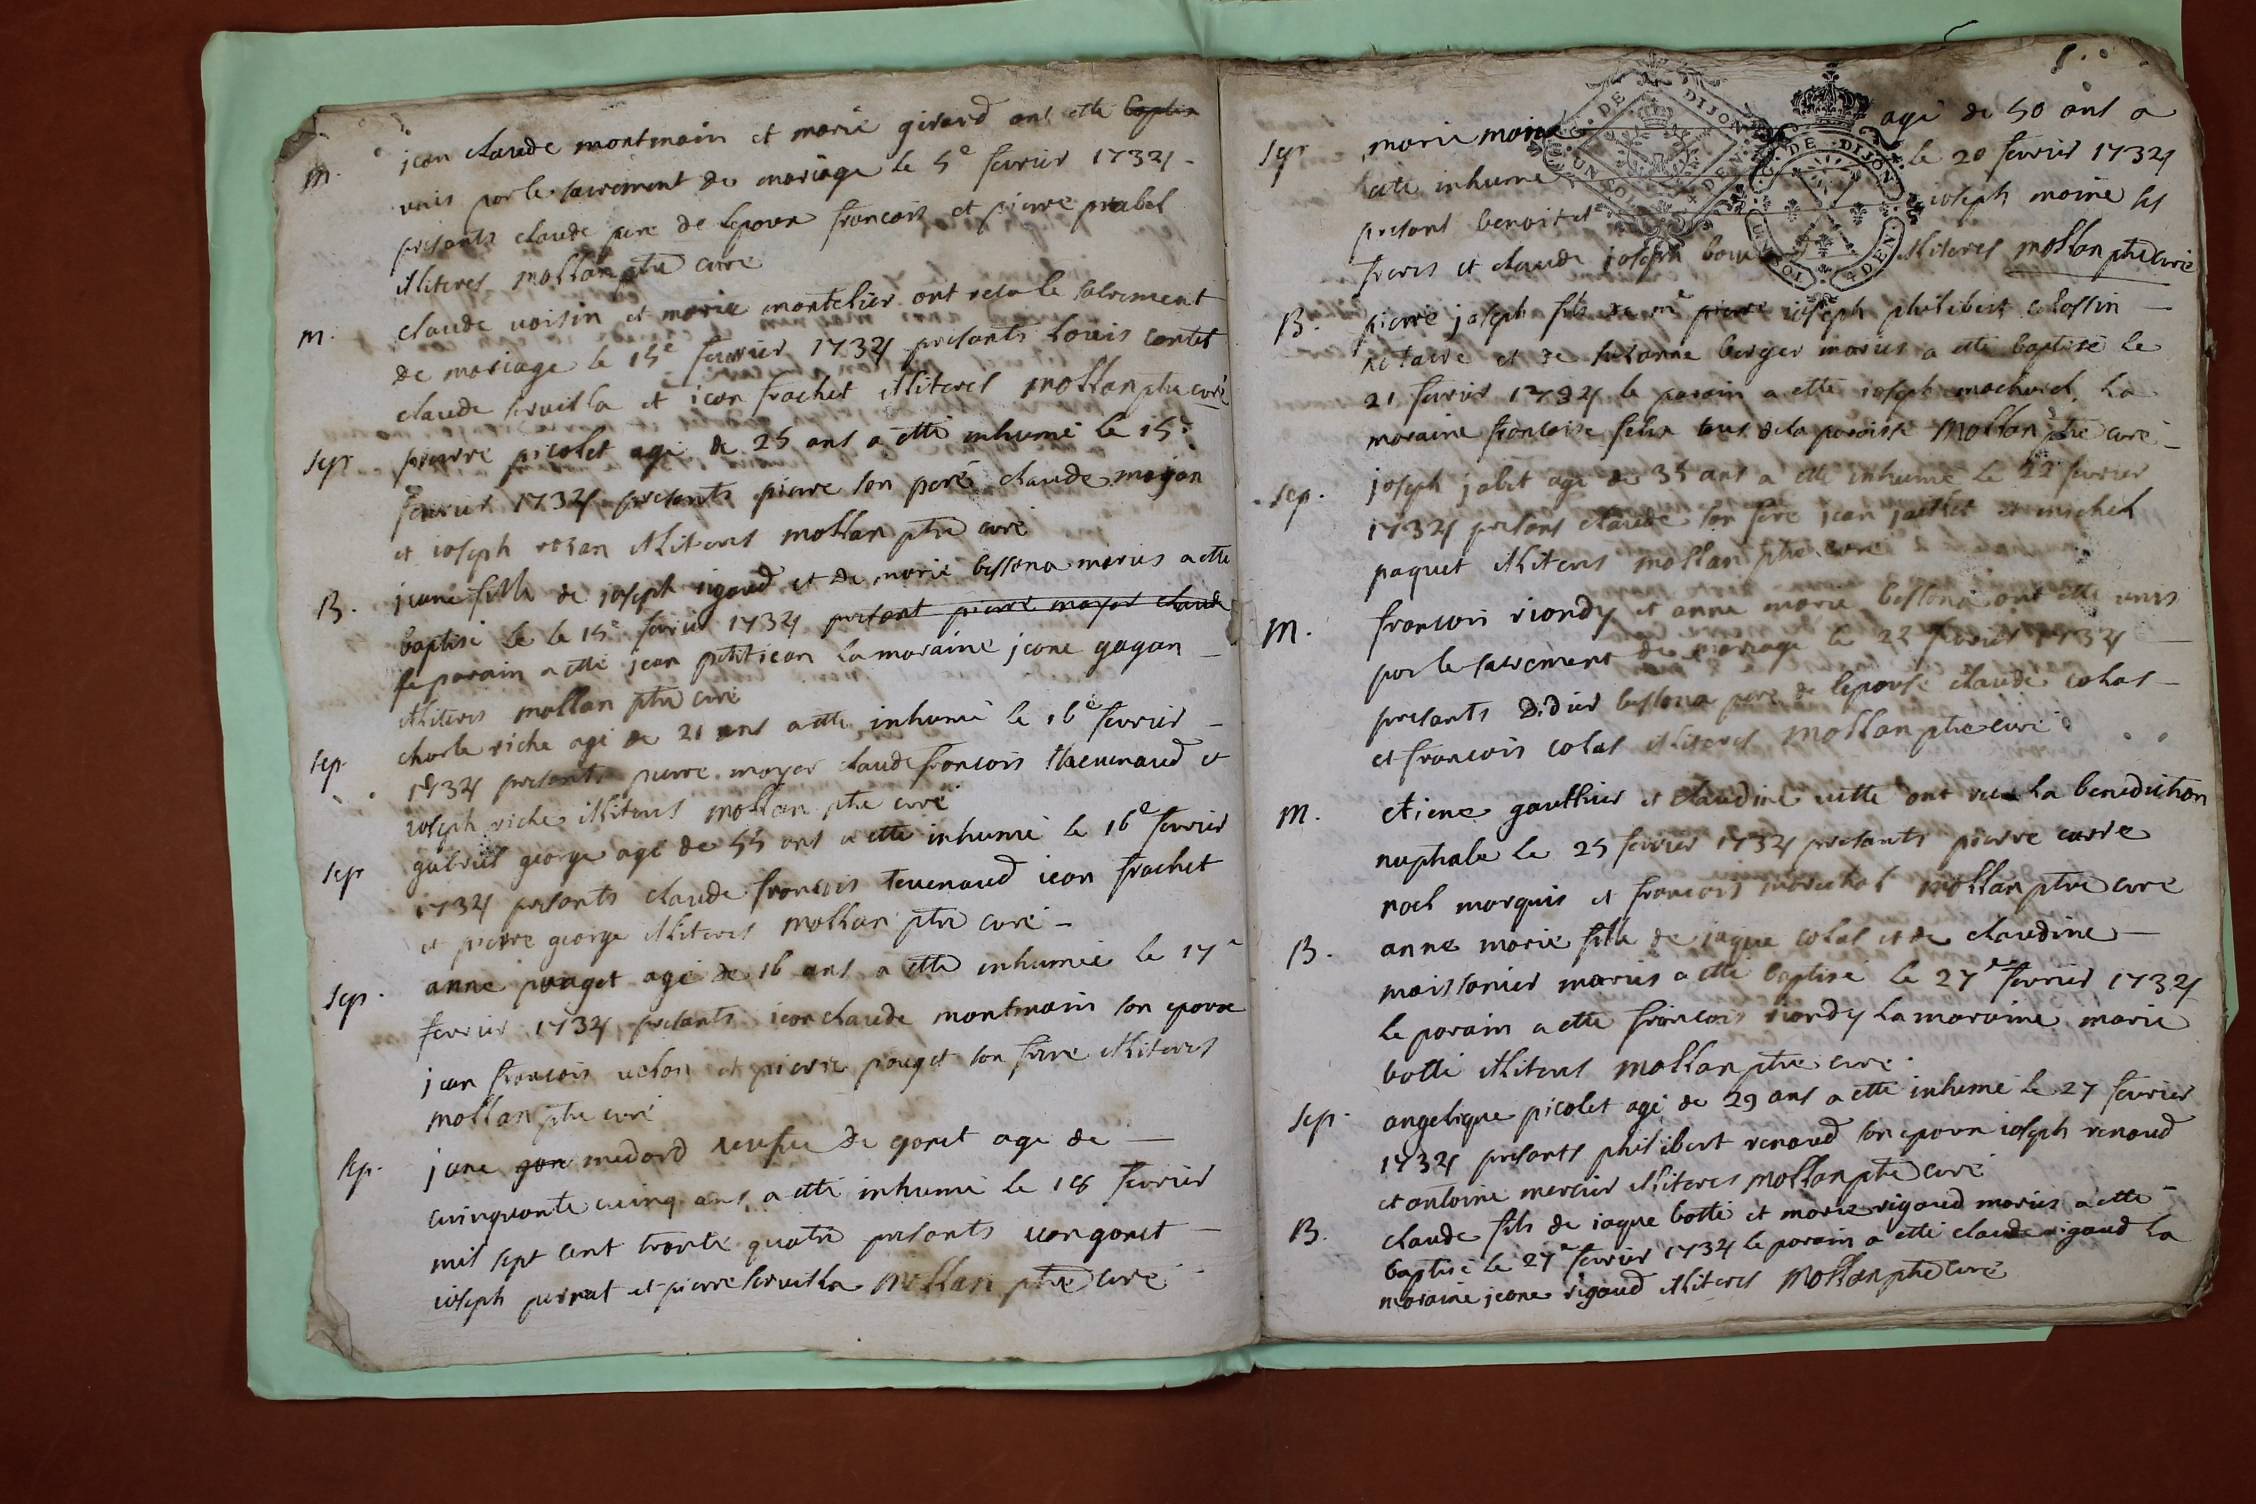 m. jean claude montmain et marie girard ont etté baptis
unis par le sacrement de mariage le 5e fevrier 1734
presants claude pere de lepoux francois et pierre prabel
illiteres mollan ptre curé
m. claude voisin et marie montelier ont recu le sacrement
de mariage le 15e fevrier 1734 presants louis contet
claude servilla et jean frachet illiteres mollan ptre curé
sep pierre picolet agé de 25 ans a etté inhumé le 15e
fevrier 1734 presants pierre son peré claude moyon
et joseph rozan illiteres mollan ptre curé
B. jeane fille de joseph rigaud et de marie bessona mariés a etté
baptisé le le 15e fevrier 1734 presant pierre mayor claude
le parain a etté jean petitjean la maraine jeane gagon
illiteres mollan ptre curé
sep charle riche agé de 21 ans a etté inhumé le 16e fevrier
1734 presants pierre mayor claude francois thevenaud et
joseph riche illiteres mollan ptre curé
sep gabriel george agé de 55 ans a etté inhumé le 16e fevrier
1734 presants claude francois tevenaud jean frachet
et pierre george illiteres mollan ptre curé
sep. anne pouget agé de 16 ans a etté inhumée le 17e
fevrier 1734 presants jean claude montmain son epoux
jean francois uchon et pierre pouget son frere illiteres
mollan ptre curé
sep. jane gon medard veufue de goret age de
cuinquante cuinq ans a etté inhumé le 18 fevrier
mil sept cent trante quatre presants jean goret
joseph pernat et pierre servilla mollan ptre curé
sep marie moine agé de 50 ans a
eté inhumé le 20 fevrier 1734
presant benoit et joseph moine ses
freres et claude joseph illiteres mollan ptre curé
DE DIJON
UN SOL DEN
DE DIJON
DEN
B. pierre joseph fils de me pierre joseph philibert colossin
notaire et de suzanne berger mariés a etté baptisé le
21 fevrier 1734 le parain a etté joseph machard la
maraine francoise felix tous de la paroisse mollan ptre curé
sep. joseph jalet agé de 35 ans a etté inhumé le 22 fevrier
1734 presant claude son fere jean jaillet et michel
paquet illiteres mollan ptre curé
m. francois riondy et anne marie bessona ont etté unis
par le sacrement de mariage le 22 fevrier 1734
presants didier bessona pere de lepouse claude colas
et francois colas illiteres mollan ptre curé
m. etiene gauthier et claudine vitte ont recu la benediction
nuptiale le 25 fevrier 1734 presants pierre carre
noel marquis et francois marechal mollan ptre curé
B. anne marie fille de jaque colas et de claudine
maissonier mariés a etté baptisé le 27e fevrier 1734
le parain a etté francois riondy la maraine marie
botti illiteres mollan ptre curé
sep. angelique picolet agé de 29 ans a etté inhumé le 27 fevrier
1734 presants philibert renaud son epoux joseph renaud
et antoine mercier illiteres mollan ptre curé
B. claude fils de jaque botti et marie rigaud mariés a etté
baptisé le 27e fevrier 1734 le parain a etté claude rigaud la
maraine jeane rigaud illiteres mollan ptre curé